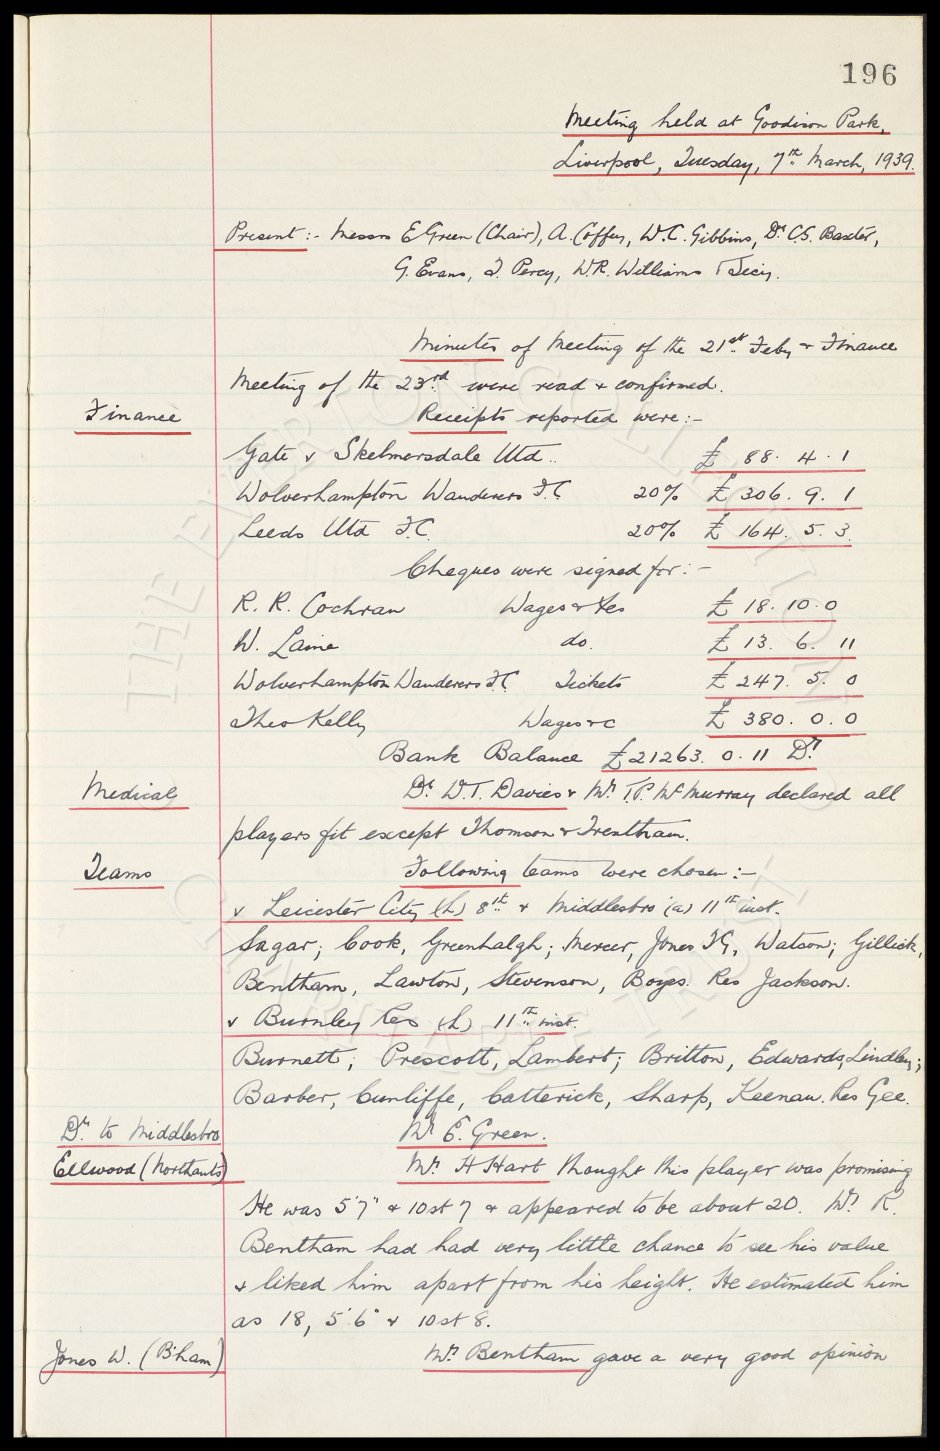 196
Meeting held at Goodison Park,
Liverpool, Tuesday, 7th March, 1939.
Present :- Messrs E Green (Chair), A. Coffey, W.C. Gibbins, Dr C.S. Baxter,
G. Evans, T. Percy, W.R. Williams & Secy.
Minutes of Meeting of the 21st Feby & Finance
Meeting of the 23rd were read & confirmed.
Finance
Receipts reported were :-
Gate v Skelmersdale Utd.. £ 88. 4. 1
Wolverhampton Wanderers F.C 20% £ 306. 9. 1
Leeds Utd F.C. 20% £ 164. 5. 3.
Cheques were signed for :-
R. R. Cochran Wages & £ 18. 10. 0
W. Laine do. £ 13. 6. 11
Wolverhampton Wanderers F.C Tickets £ 247. 5. 0
Theo Kelly Wages &c £ 380. 0. 0
Bank Balance £21263. 0. 11 Dr
Medical
Dr W.T. Davies & Mr T.P. McMurray declared all
players fit except Thomson & Trentham.
Teams
Following teams were chosen :-
v Leicester City (h) 8th & Middlesbro' (a) 11th inst.
Sagar; Cook, Greenhalgh; Mercer, Jones TG, Watson; Gillick,
Bentham, Lawton, Stevenson, Boyes. Res Jackson.
v Burnley Res (h) 11th inst.
Burnett; Prescott, Lambert; Britton, Edwards, Lindley;
Barber, Cunliffe, Catterick, Sharp, Keenan. Res Gee.
Dr. to Middlesbro
Mr E. Green.
Ellwood (Northants)
Mr H Hart thought this player was promising
He was 5'7" & 10st 7 & appeared to be about 20. Mr R.
Bentham had had very little chance to see his value
& liked him apart from his height. He estimated him
as 18, 5'.6" & 10st 8.
Jones W. (B'ham)
Mr Bentham gave a very good opinion
THE EVERTON COLLECTION
CHARITABLE TRUST